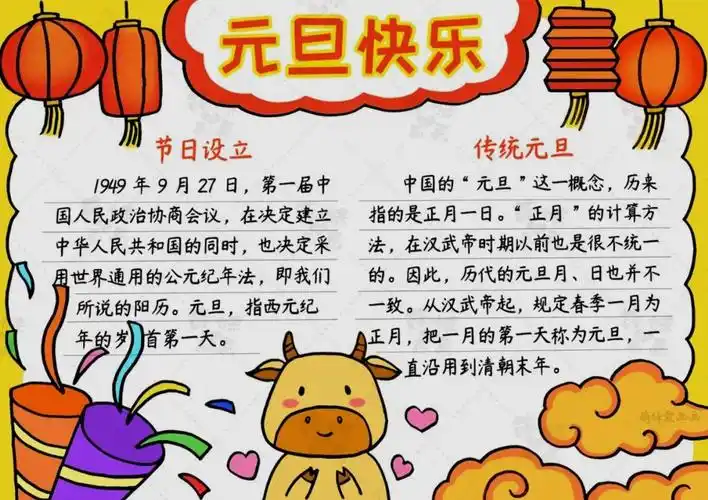 元旦快乐
节日设立
1949年9月27日，第一届中
国人民政治协商会议，在决定建立
中华人民共和国的同时，也决定采
用世界通用的公元纪年法，即我们
所说的阳历。元旦，指西元纪
年的岁首第一天。
传统元旦
中国的“元旦”这一概念，历来
指的是正月一日。“正月”的计算方
法，在汉武帝时期以前也是很不统一
的。因此，历代的元旦月、日也并不
一致。从汉武帝起，规定春季一月为
正月，把一月的第一天称为元旦，一
直沿用到清朝末年。